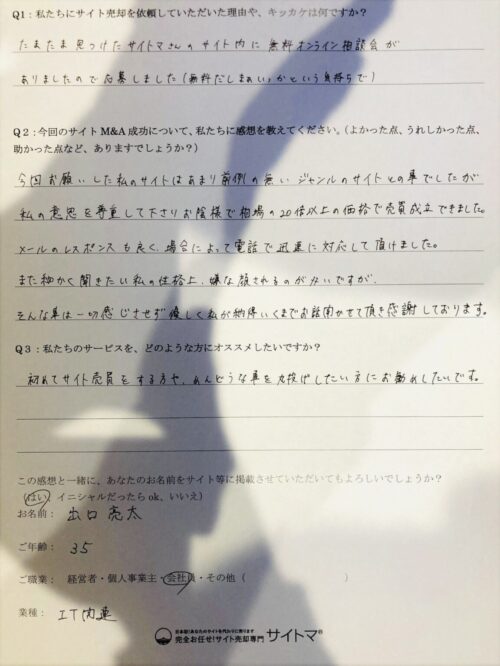 Q1：私たちにサイト売却を依頼していただいた理由や、キッカケは何ですか？
たまたま見つけたサイトマさんのサイト内に無料オンライン相談会が
ありましたので応募しました(無料だしまぁいっかという気持ちで)
Q2：今回のサイトM&A成功について、私たちに感想を教えてください。（よかった点、うれしかった点、
助かった点など、ありますでしょうか？）
今回お願いした私のサイトはあまり前例の無いジャンルのサイトとの事でしたが
私の意思を尊重して下さりお陰様で相場の20倍以上の価格で売買成立できました。
メールのレスポンスも良く、場合によって電話で迅速に対応して頂けました。
また細かく聞きたい私の性格上、嫌な顔されるのが多いですが、
そんな事は一切感じさせず優しく私が納得いくまでお話聞かせて頂き感謝しております。
Q3：私たちのサービスを、どのような方にオススメしたいですか？
初めてサイト売買をする方や、めんどうな事を丸投げしたい方にお勧めしたいです。
この感想と一緒に、あなたのお名前をサイト等に掲載させていただいてもよろしいでしょうか？
（はい、イニシャルだったらok、いいえ）
お名前： 出口亮太
ご年齢： 35
ご職業： 経営者・個人事業主・会社員・その他（ ）
業種： IT関連
日本初！あなたのサイトを代わりに売ります
完全お任せ！サイト売却専門 サイトマ®